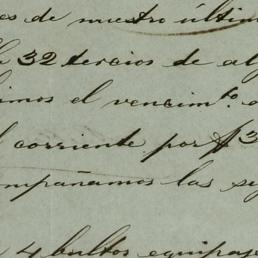 es de nuestro últim
32 tercios de al
imos el vencimto.
corriente por $3
mpañamos las
4 bultos equipaje